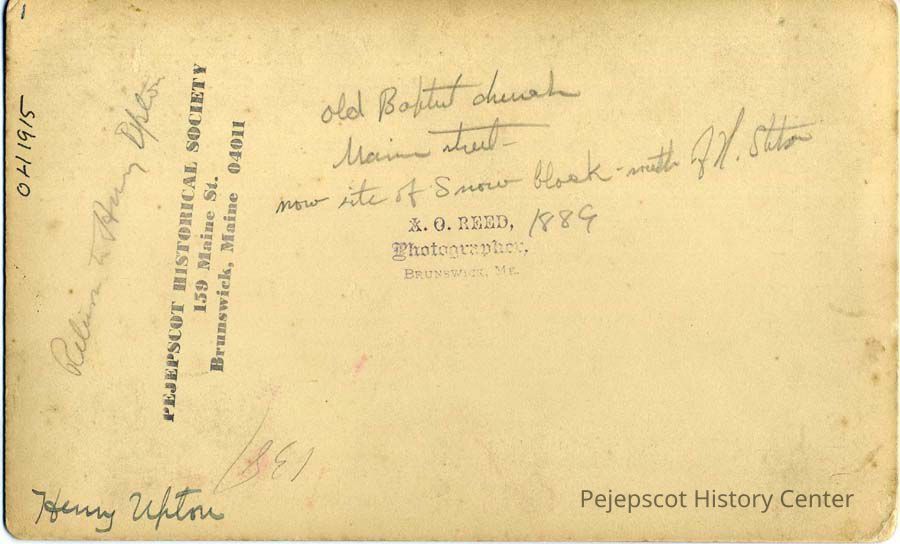 old Baptist church
Maine street
now site of Snow block - of H.
1889
A. O. REED,
Photographer,
BRUNSWICK, ME.
PEJEPSCOT HISTORICAL SOCIETY
159 Maine St.
Brunswick, Maine 04011
Return to Henry Upton
OH 1915
Henry Upton
Pejepscot History Center